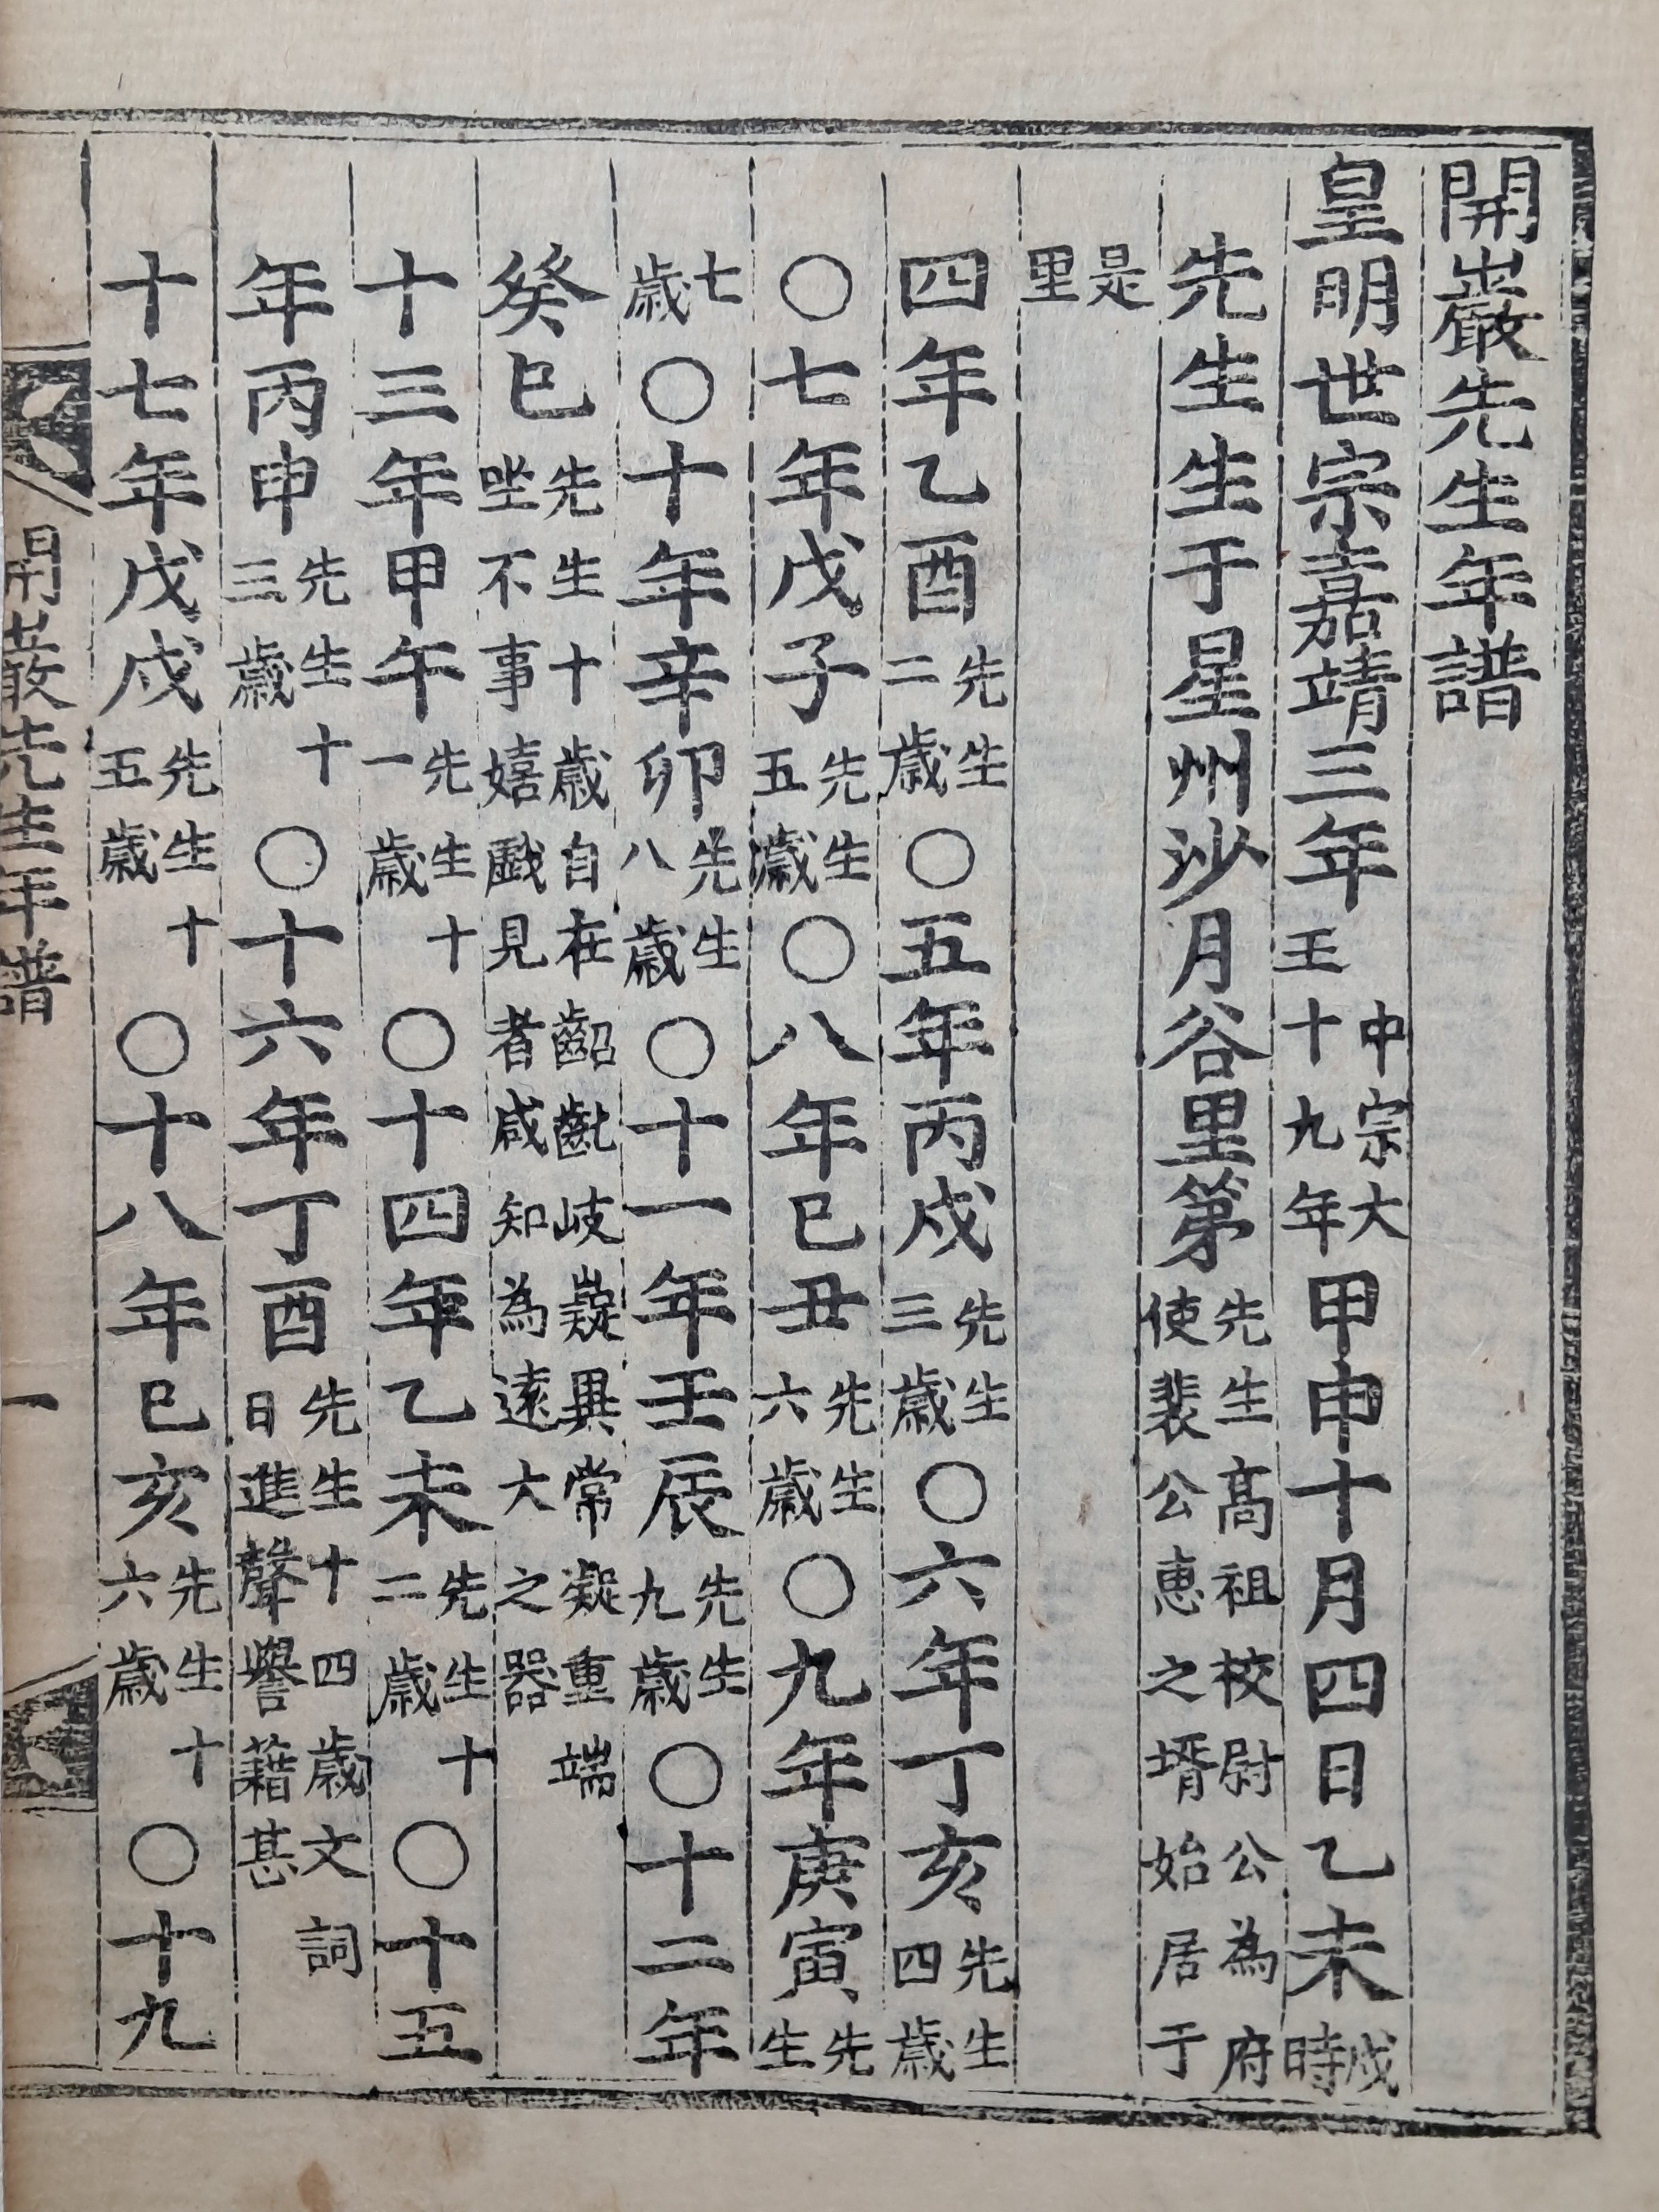 開巖先生年譜
皇明世宗嘉靖三年中宗大王十九年甲申十月四日乙未戌時
先生生于星州沙月谷里第先生高祖校尉公為府使裴公惠之壻始居于
是里
四年乙酉先生二歲○五年丙戌先生三歲○六年丁亥先生四歲
○七年戊子先生五歲○八年己丑先生六歲○九年庚寅先生
七歲○十年辛卯先生八歲○十一年壬辰先生九歲○十二年
癸巳先生十歲自在齠齔岐嶷異常凝重端坐不事嬉戲見者咸知為遠大之器
十三年甲午先生十一歲○十四年乙未先生十二歲○十五
年丙申先生十三歲○十六年丁酉先生十四歲文詞日進聲譽藉甚
十七年戊戌先生十五歲○十八年己亥先生十六歲○十九
開巖先生年譜 一